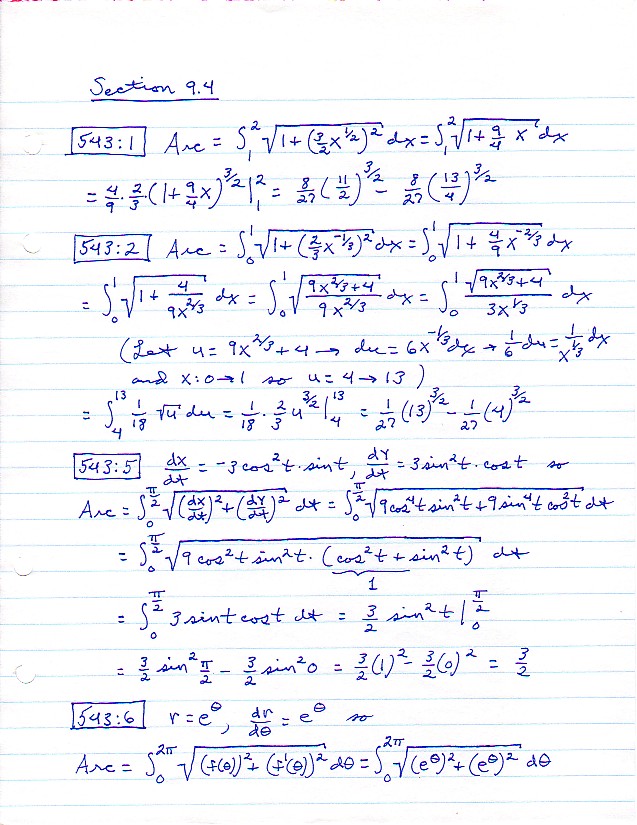 Section 9.4
543:1 Arc = ∫₁² √(1 + (3/2 x^(1/2))²) dx = ∫₁² √(1 + 9/4 x) dx
= 4/9 · 2/3 · (1 + 9/4 x)^(3/2) |₁² = 8/27 (11/2)^(3/2) - 8/27 (13/4)^(3/2)
543:2 Arc = ∫₀¹ √(1 + (2/3 x^(-1/3))²) dx = ∫₀¹ √(1 + 4/9 x^(-2/3)) dx
= ∫₀¹ √(1 + 4/(9x^(2/3))) dx = ∫₀¹ √((9x^(2/3)+4)/(9x^(2/3))) dx = ∫₀¹ √(9x^(2/3)+4)/(3x^(1/3)) dx
(Let u = 9x^(2/3) + 4 → du = 6x^(-1/3) dx → 1/6 du = 1/x^(1/3) dx
and x: 0→1 so u = 4→13)
= ∫₄¹³ 1/18 √u du = 1/18 · 2/3 u^(3/2) |₄¹³ = 1/27 (13)^(3/2) - 1/27 (4)^(3/2)
543:5 dx/dt = -3cos²t·sint, dY/dt = 3sin²t·cost so
Arc = ∫₀^(π/2) √((dx/dt)² + (dY/dt)²) dt = ∫₀^(π/2) √(9cos⁴t sin²t + 9sin⁴t cos²t) dt
= ∫₀^(π/2) √(9cos²t sin²t · (cos²t + sin²t)) dt
1
= ∫₀^(π/2) 3 sint cost dt = 3/2 sin²t |₀^(π/2)
= 3/2 sin² π/2 - 3/2 sin² 0 = 3/2 (1)² - 3/2 (0)² = 3/2
543:6 r = e^θ, dr/dθ = e^θ so
Arc = ∫₀^(2π) √((f(θ))² + (f'(θ))²) dθ = ∫₀^(2π) √((e^θ)² + (e^θ)²) dθ